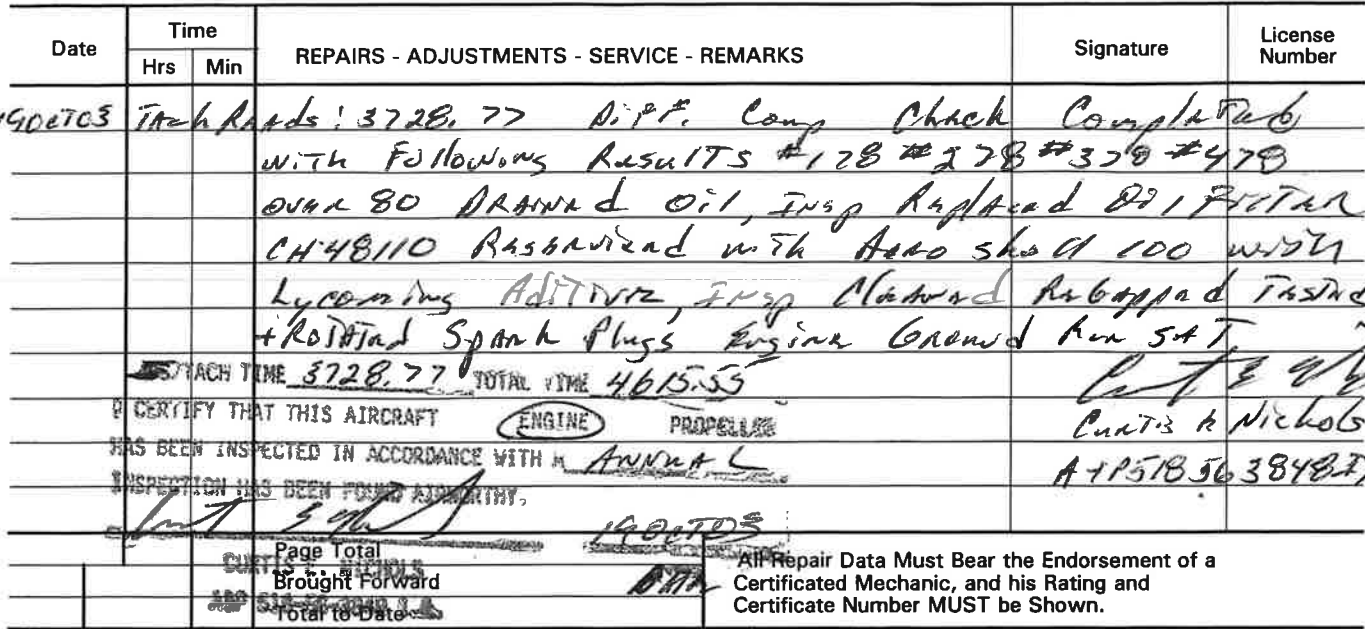 Date Time REPAIRS - ADJUSTMENTS - SERVICE - REMARKS Signature License Number
Hrs Min
19OCT03 Tach Reads: 3728.77 Diff. Comp Check Completed
with Following Results #178 #278 #378 #478
over 80 Drained Oil, Insp Replaced Oil Filter
CH48110 Reserviced with Aero shell 100 with
Lycoming Aditive, Insp Cleaned Regapped Tested
+ Rotated Spark Plugs Engine Ground Run SAT
TACH TIME 3728.77 TOTAL TIME 4615.55
I CERTIFY THAT THIS AIRCRAFT ENGINE PROPELLER
Curtis E Nichols
HAS BEEN INSPECTED IN ACCORDANCE WITH A ANNUAL
A+P518563848IA
INSPECTION HAS BEEN FOUND AIRWORTHY.
19OCT03
CURTIS E. NICHOLS
Page Total
Brought Forward
Total to Date
All Repair Data Must Bear the Endorsement of a
Certificated Mechanic, and his Rating and
Certificate Number MUST be Shown.